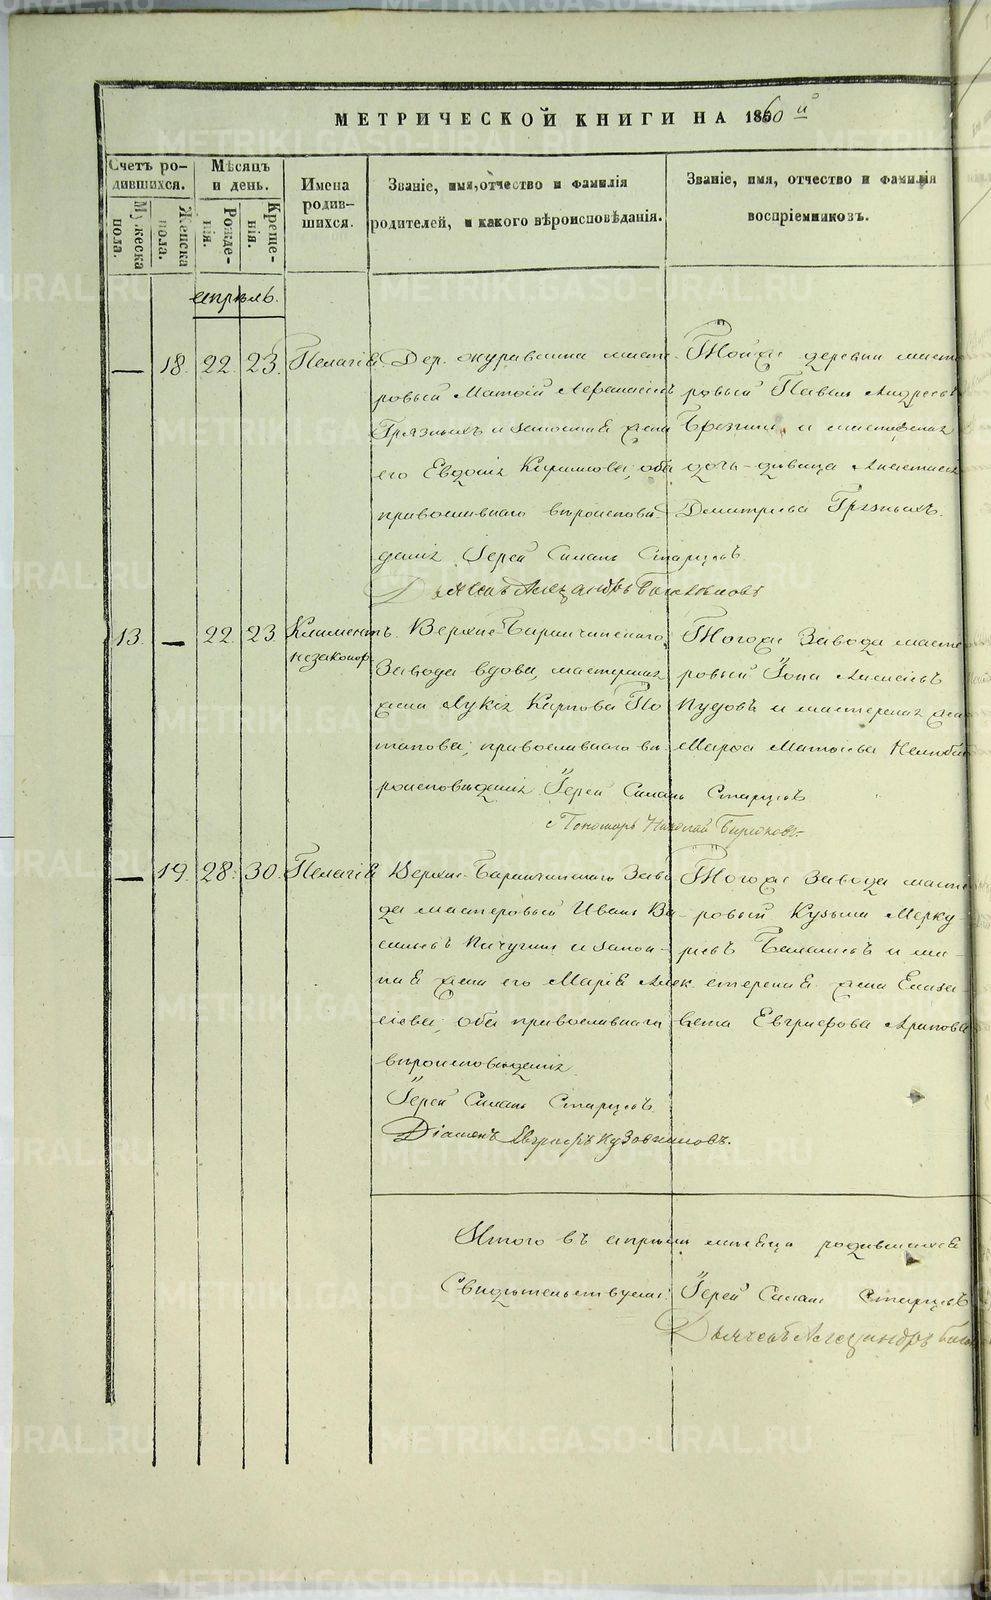 МЕТРИЧЕСКОЙ КНИГИ НА 1860 й
Счетъ ро-
дившихся.
Мужеска пола.
Женска пола.
Мѣсяцъ
и день.
Рожде-
нія.
Креще-
нія.
Имена
родив-
шихся.
Званіе, имя, отчество и фамилія
родителей, и какого вѣроисповѣданія.
Званіе, имя, отчество и фамилія
воспріемниковъ.
апрѣль.
— 18. 22. 23. Пелагія.
Дер. масте-
ровый Матѳій Аѳанасіевъ
Грязныхъ и законная жена
его Евдокія Кирилова; оба
православнаго вѣроисповѣ-
данія. Іерей Симонъ Старцевъ
Дьячекъ Александръ
Тойже деревни масте
ровый Павелъ Андреевъ
и мастерская
дочь-дѣвица Анастасія
Димитріева Грязныхъ.
13. — 22 23 Климентъ.
незаконор.
Верхне-Баранчинскаго
Завода вдова, мастерская
жена Лукія Карпова По
тапова; православнаго вѣ-
роисповѣданія Іерей Симонъ Старцевъ
Пономарь Николай Бирюковъ
Тогоже Завода масте
ровый Іона Алексіевъ
Пудовъ и мастерская жена
Марѳа Матѳіева
— 19. 28. 30. Пелагія
Верхне-Баранчинскаго Заво
да мастеровый Иванъ Ва-
сильевъ Пичугинъ и закон-
ная жена его Марія Алек
сіева; оба православнаго
вѣроисповѣданія.
Іерей Симонъ Старцевъ
Діаконъ Кузовниковъ.
Тогоже Завода масте
ровый Кузьма Мерку-
рьевъ и ма-
стерская жена Елиза
вета Евграфова Арапова
Итого въ апрѣлѣ мѣсяцѣ родившихся
Свидѣтельствуемъ: Іерей Симонъ Старцевъ
Дьячекъ Александръ